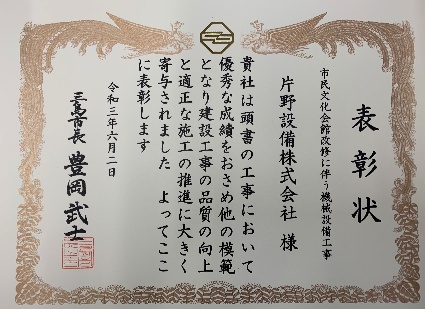 表彰状
市民文化会館改修に伴う機械設備工事
片野設備株式会社 様
貴社は頭書の工事において
優秀な成績をおさめ他の模範
となり建設工事の品質の向上
と適正な施工の推進に大きく
寄与されました よってここ
に表彰します
令和三年六月二日
三島市長 豊岡武士